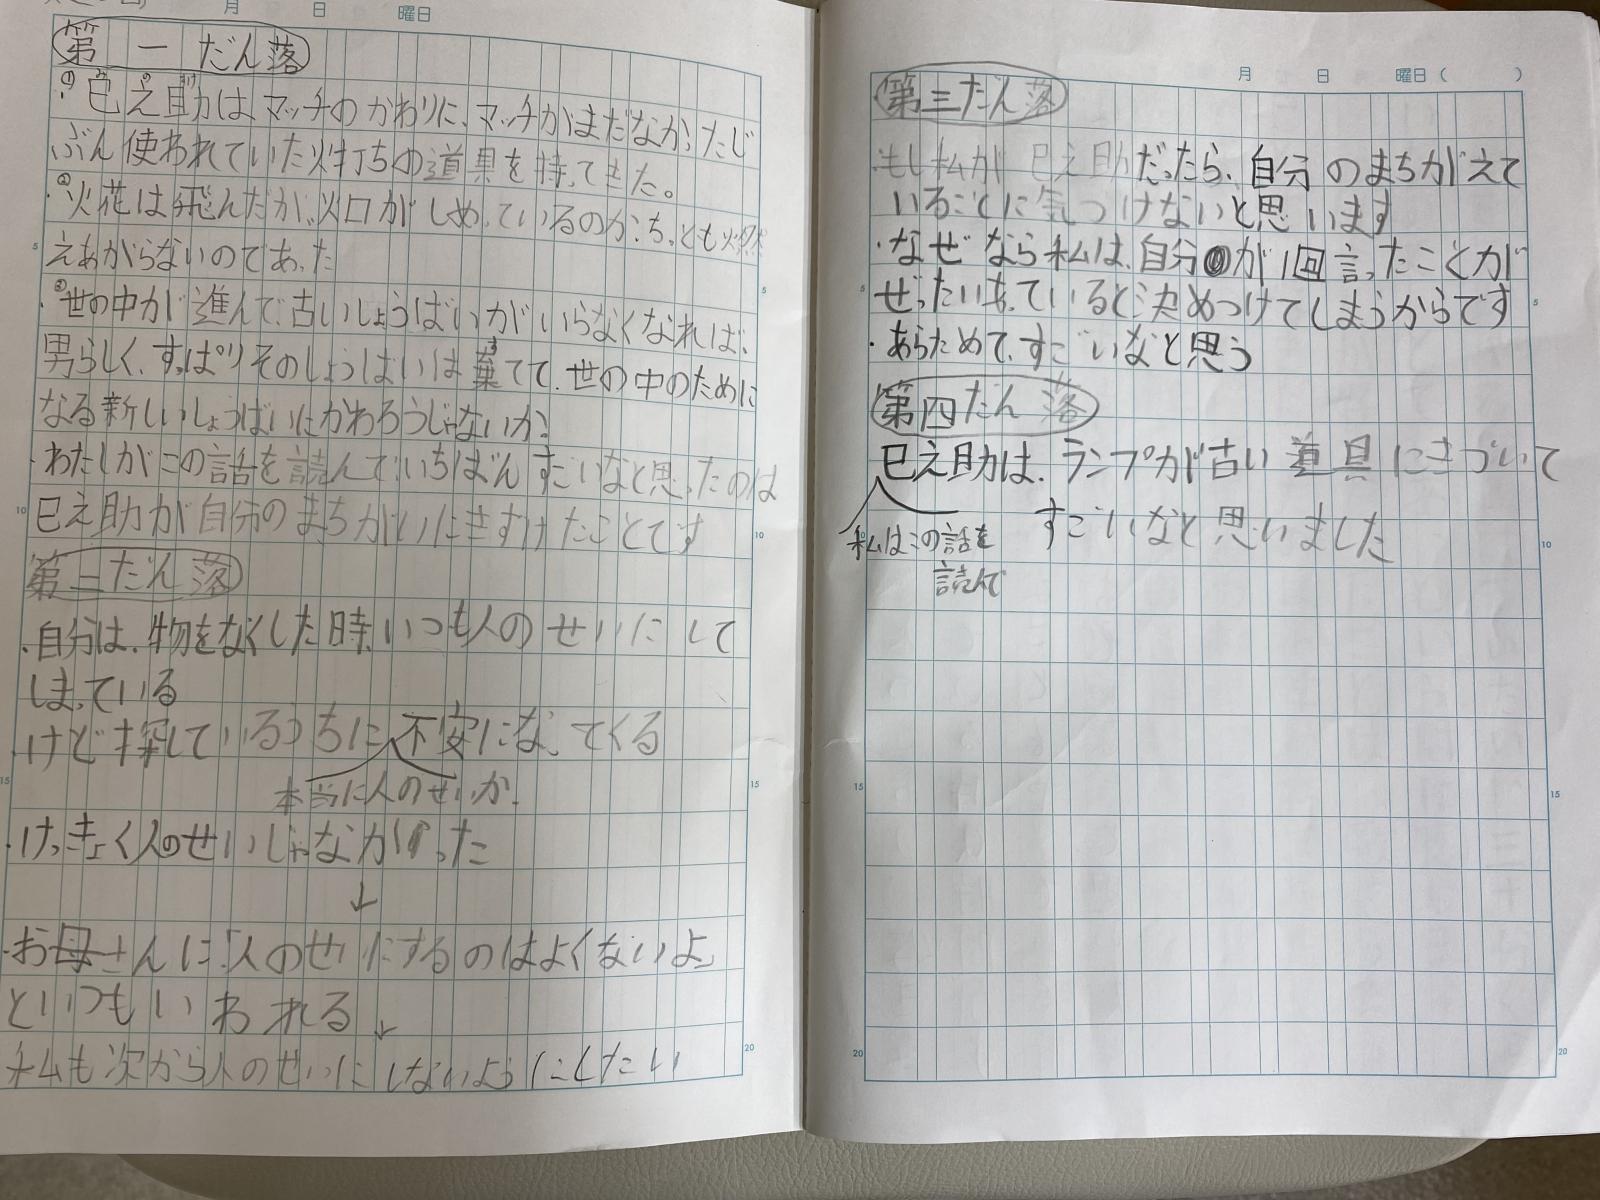 月 日 曜日
第一だん落
①巳之助はマッチのかわりに、マッチがまだなかったじ
ぶん使われていた火打ちの道具を持ってきた。
・②火花は飛んだが、火口がしめっているのか、ちっとも燃
えあがらないのであった
・③世の中が進んで、古いしょうばいがいらなくなれば、
男らしく、すっぱりそのしょうばいは棄てて、世の中のために
なる新しいしょうばいにかわろうじゃないか
・わたしがこの話を読んで、いちばんすごいなと思ったのは
巳之助が自分のまちがいにきずけたことです
第二だん落
・自分は、物をなくした時、いつも人のせいにして
しまっている
・けど探しているうちに不安になってくる
本当に人のせいか
・けっきょく人のせいじゃなかった
↓
・お母さんに「人のせいにするのはよくないよ」
といつもいわれる↓
私も次から人のせいにしないようにしたい
月 日 曜日( )
第三だん落
もし私が巳之助だったら、自分のまちがえて
いることに気づけないと思います
・なぜなら私は、自分が1回言ったことが
ぜったいあっていると決めつけてしまうからです
・あらためて、すごいなと思う
第四だん落
巳之助は、ランプが古い道具にきづいて
私はこの話を
読んで
すごいなと思いました